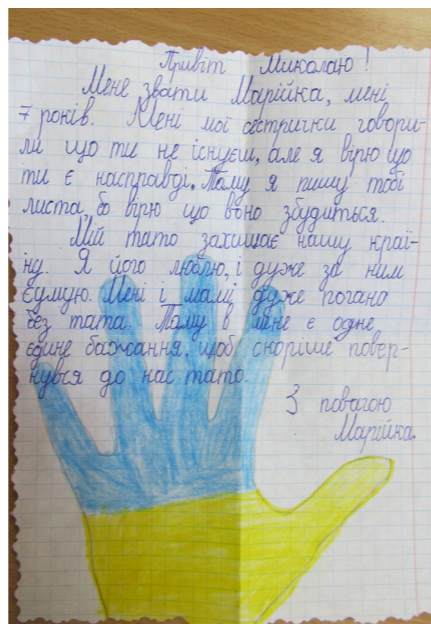 Привіт Миколаю!
Мене звати Марійка, мені
7 років. Мені мої сестрички говори-
ли що ти не існуєш, але я вірю що
ти є насправді. Тому я пишу тобі
листа, бо вірю що воно збудиться.
Мій тато захищає нашу краї-
ну. Я його люблю, і дуже за ним
сумую. Мені і мамі дуже погано
без тата. Тому в мене є одне,
єдине бажання, щоб скоріше повер-
нувся до нас тато.
З повагою
Марійка.